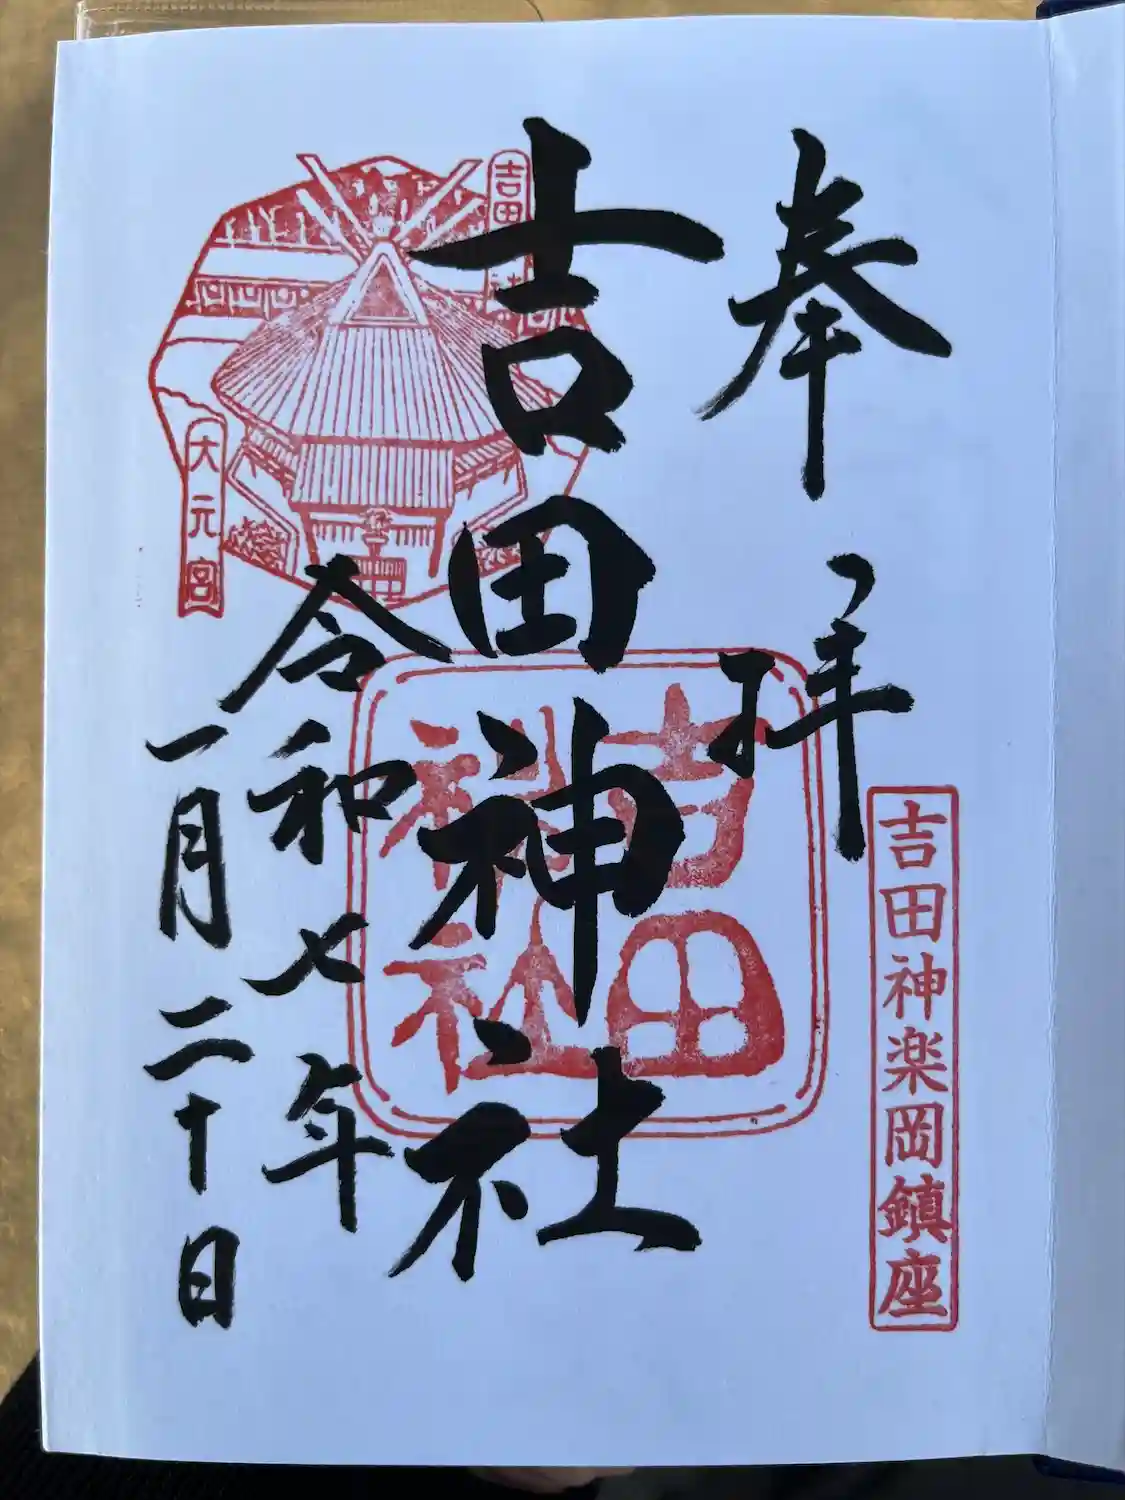 奉拝
吉田神楽岡鎮座
吉田神社
吉田神社
令和七年
一月二十日
吉田
大元宮